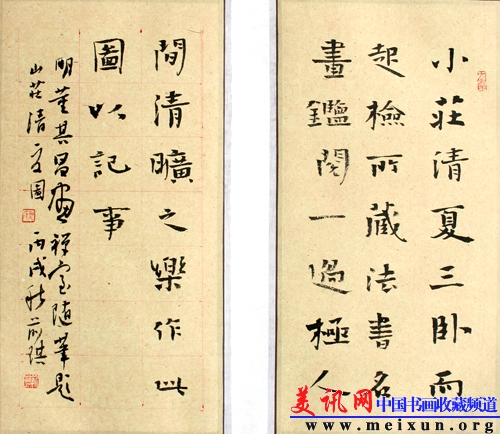 小莊清夏三卧而
起檢所藏法書名
畫鑑閱一過極人
間清曠之樂作此
圖以記事
明董其昌畫禪室隨筆題
山莊清夏圖
丙戌秋
美讯网 中国书画收藏频道
www.meixun.org